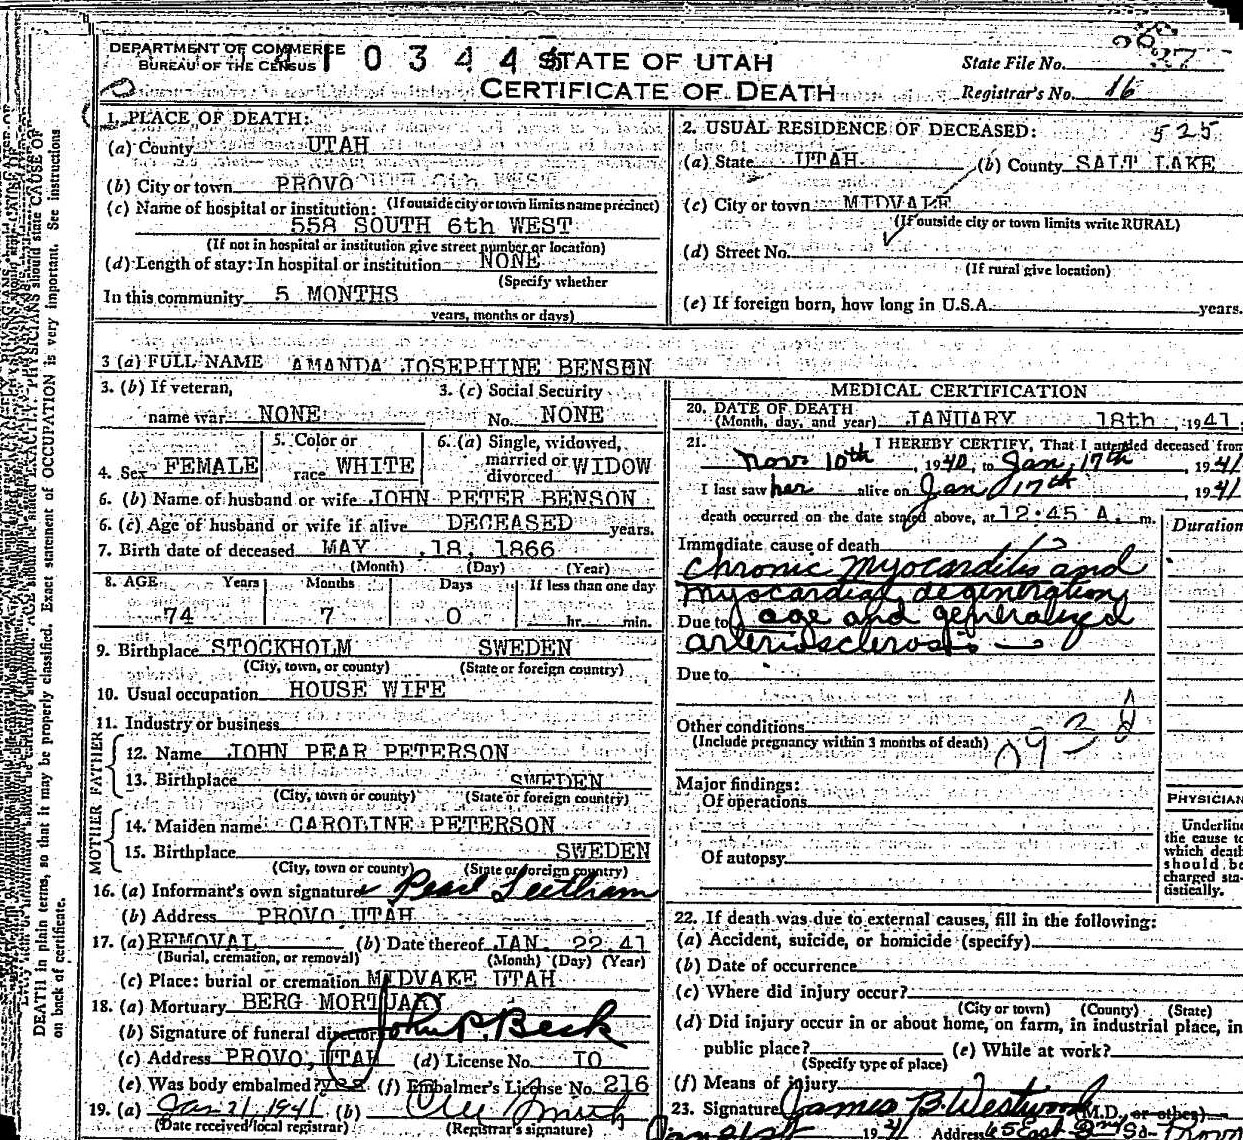 DEPARTMENT OF COMMERCE
BUREAU OF THE CENSUS
0 3 4 4
STATE OF UTAH
CERTIFICATE OF DEATH
State File No.
Registrar's No. 16
1. PLACE OF DEATH:
(a) County UTAH
(b) City or town PROVO
(If outside city or town limits name precinct)
(c) Name of hospital or institution:
558 SOUTH 6th WEST
(If not in hospital or institution give street number or location)
(d) Length of stay: In hospital or institution NONE
(Specify whether
In this community 5 MONTHS
years, months or days)
2. USUAL RESIDENCE OF DECEASED: 525
(a) State UTAH (b) County SALT LAKE
(c) City or town MIDVALE
(If outside city or town limits write RURAL)
(d) Street No.
(If rural give location)
(e) If foreign born, how long in U.S.A. years.
3 (a) FULL NAME AMANDA JOSEPHINE BENSEN
3. (b) If veteran,
name war NONE
3. (c) Social Security
No. NONE
4. Sex FEMALE
5. Color or
race WHITE
6. (a) Single, widowed,
married or
divorced WIDOW
6. (b) Name of husband or wife JOHN PETER BENSON
6. (c) Age of husband or wife if alive DECEASED years.
7. Birth date of deceased MAY 18, 1866
(Month) (Day) (Year)
8. AGE Years Months Days If less than one day
74 7 0 hr. min.
9. Birthplace STOCKHOLM SWEDEN
(City, town, or county) (State or foreign country)
10. Usual occupation HOUSE WIFE
11. Industry or business
FATHER
12. Name JOHN PEAR PETERSON
13. Birthplace SWEDEN
(City, town or county) (State or foreign country)
MOTHER
14. Maiden name CAROLINE PETERSON
15. Birthplace SWEDEN
(City, town or county) (State or foreign country)
16. (a) Informant's own signature Pearl Leetham
(b) Address PROVO UTAH
17. (a) REMOVAL (b) Date thereof JAN. 22 41
(Burial, cremation, or removal) (Month) (Day) (Year)
(c) Place: burial or cremation MIDVAKE UTAH
18. (a) Mortuary BERG MORTUARY
(b) Signature of funeral director John P. Beck
(c) Address PROVO, UTAH (d) License No. 10
(e) Was body embalmed? yes (f) Embalmer's License No. 216
19. (a) Jan 21, 1941 (b) Smith
(Date received local registrar) (Registrar's signature)
MEDICAL CERTIFICATION
20. DATE OF DEATH
(Month, day, and year) JANUARY 18th, 1941
21. I HEREBY CERTIFY, That I attended deceased from
Nov. 10th, 1940, to Jan, 17th, 1941
I last saw her alive on Jan 17th, 1941
death occurred on the date stated above, at 12:45 A. m.
Duration
Immediate cause of death
chronic myocarditis and
myocardial degeneration,
Due to age and generalized
arteriosclerosis
Due to
Other conditions
(Include pregnancy within 3 months of death)
Major findings:
Of operations
Of autopsy
PHYSICIAN
Underline
the cause to
which death
should be
charged sta-
tistically.
22. If death was due to external causes, fill in the following:
(a) Accident, suicide, or homicide (specify)
(b) Date of occurrence
(c) Where did injury occur?
(City or town) (County) (State)
(d) Did injury occur in or about home, on farm, in industrial place, in
public place? (e) While at work?
(Specify type of place)
(f) Means of injury
23. Signature James B. Westwood (M.D. or other)
1941 Address 65 East 2nd So. Provo
DEATH in plain terms, so that it may be properly classified. Exact statement of OCCUPATION is very important. See instructions
on back of certificate.